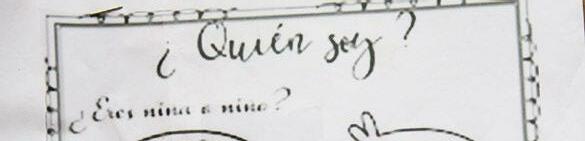 ¿Quién soy?
¿Eres nina o nino?